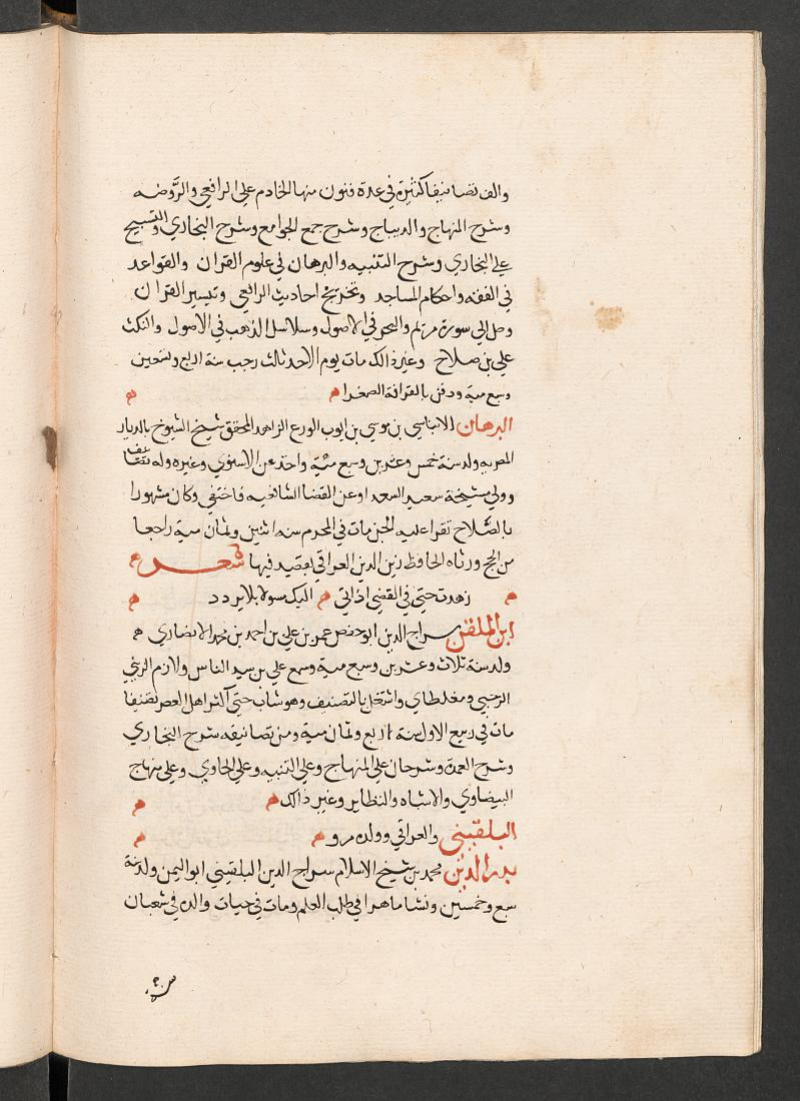 والف تصانيفا كثيرة في عدة فنون منها الخادم علي الرافعي والروضه
وشرح المنهاج والديباج وشرح جمع الجوامع وشرح البخاري والتنقيح
علي البخاري وشرح التنبيه والبرهان في علوم القران والقواعد
في الفقه واحكام المساجد وتخريج احاديث الرافعي وتفسير القران
وصل الي سورة مريم والبحر في الاصول وسلاسل الذهب في الاصول والنكت
علي بن صلاح وغير ذالك مات يوم الاحد ثالث رجب سنة اربع وتسعين
وسبع مية ودفن بالقرافة الصغرا م م
البرهان الابناسي بن موسي بن ايوب الورع الزاهد المحقق شيخ الشيوخ بالديار
المصريه ولد سنة خمس وعشرين وسبع مئية واخذ عن الاسنوي وغيره وله تصانيف
وولي مشيخة سعيد السعدا وعن القضا الشافعيه فاختفي وكان مشهورا
بالصلاح تقرا عليه الجن مات في المحرم سنه اثنين وثمان مية راجعا
من الحج ورثاه الحافظ زين الدين العراقي بقصيد فيها شعر م
م زهدت حتي في القضي اذ اتي م اليك سولا بلا يردد م
ابن الملقن سراج الدين ابو حفص عمر بن علي بن احمد بن محمد الانصاري م
ولد سنة ثلاث وعشرين وسبع مية وسمع علي بن سيد الناس ولازم الزيني
الرحبي ومغلطاي واشتغل بالتصنيف وهو شاب حتي اكثر اهل العصر تصنيفا
مات في ربيع الاول سنة اربع وثمان مية ومن تصانيفه شرح البخاري
وشرح العمدة وشرحان علي المنهاج وعلي التنبيه وعلي الحاوي وعلي منهاج
البيضاوي والاشباه والنظاير وغير ذالك م م
البلقيني والعراقي وولده مرو م م
بدر الدين محمد بن شيخ الاسلام سراج الدين البلقيني ابو اليمن ولد سنة
سبع وخمسين ونشا ماهرا في طلب العلم ومات في حيات والده في شعبان